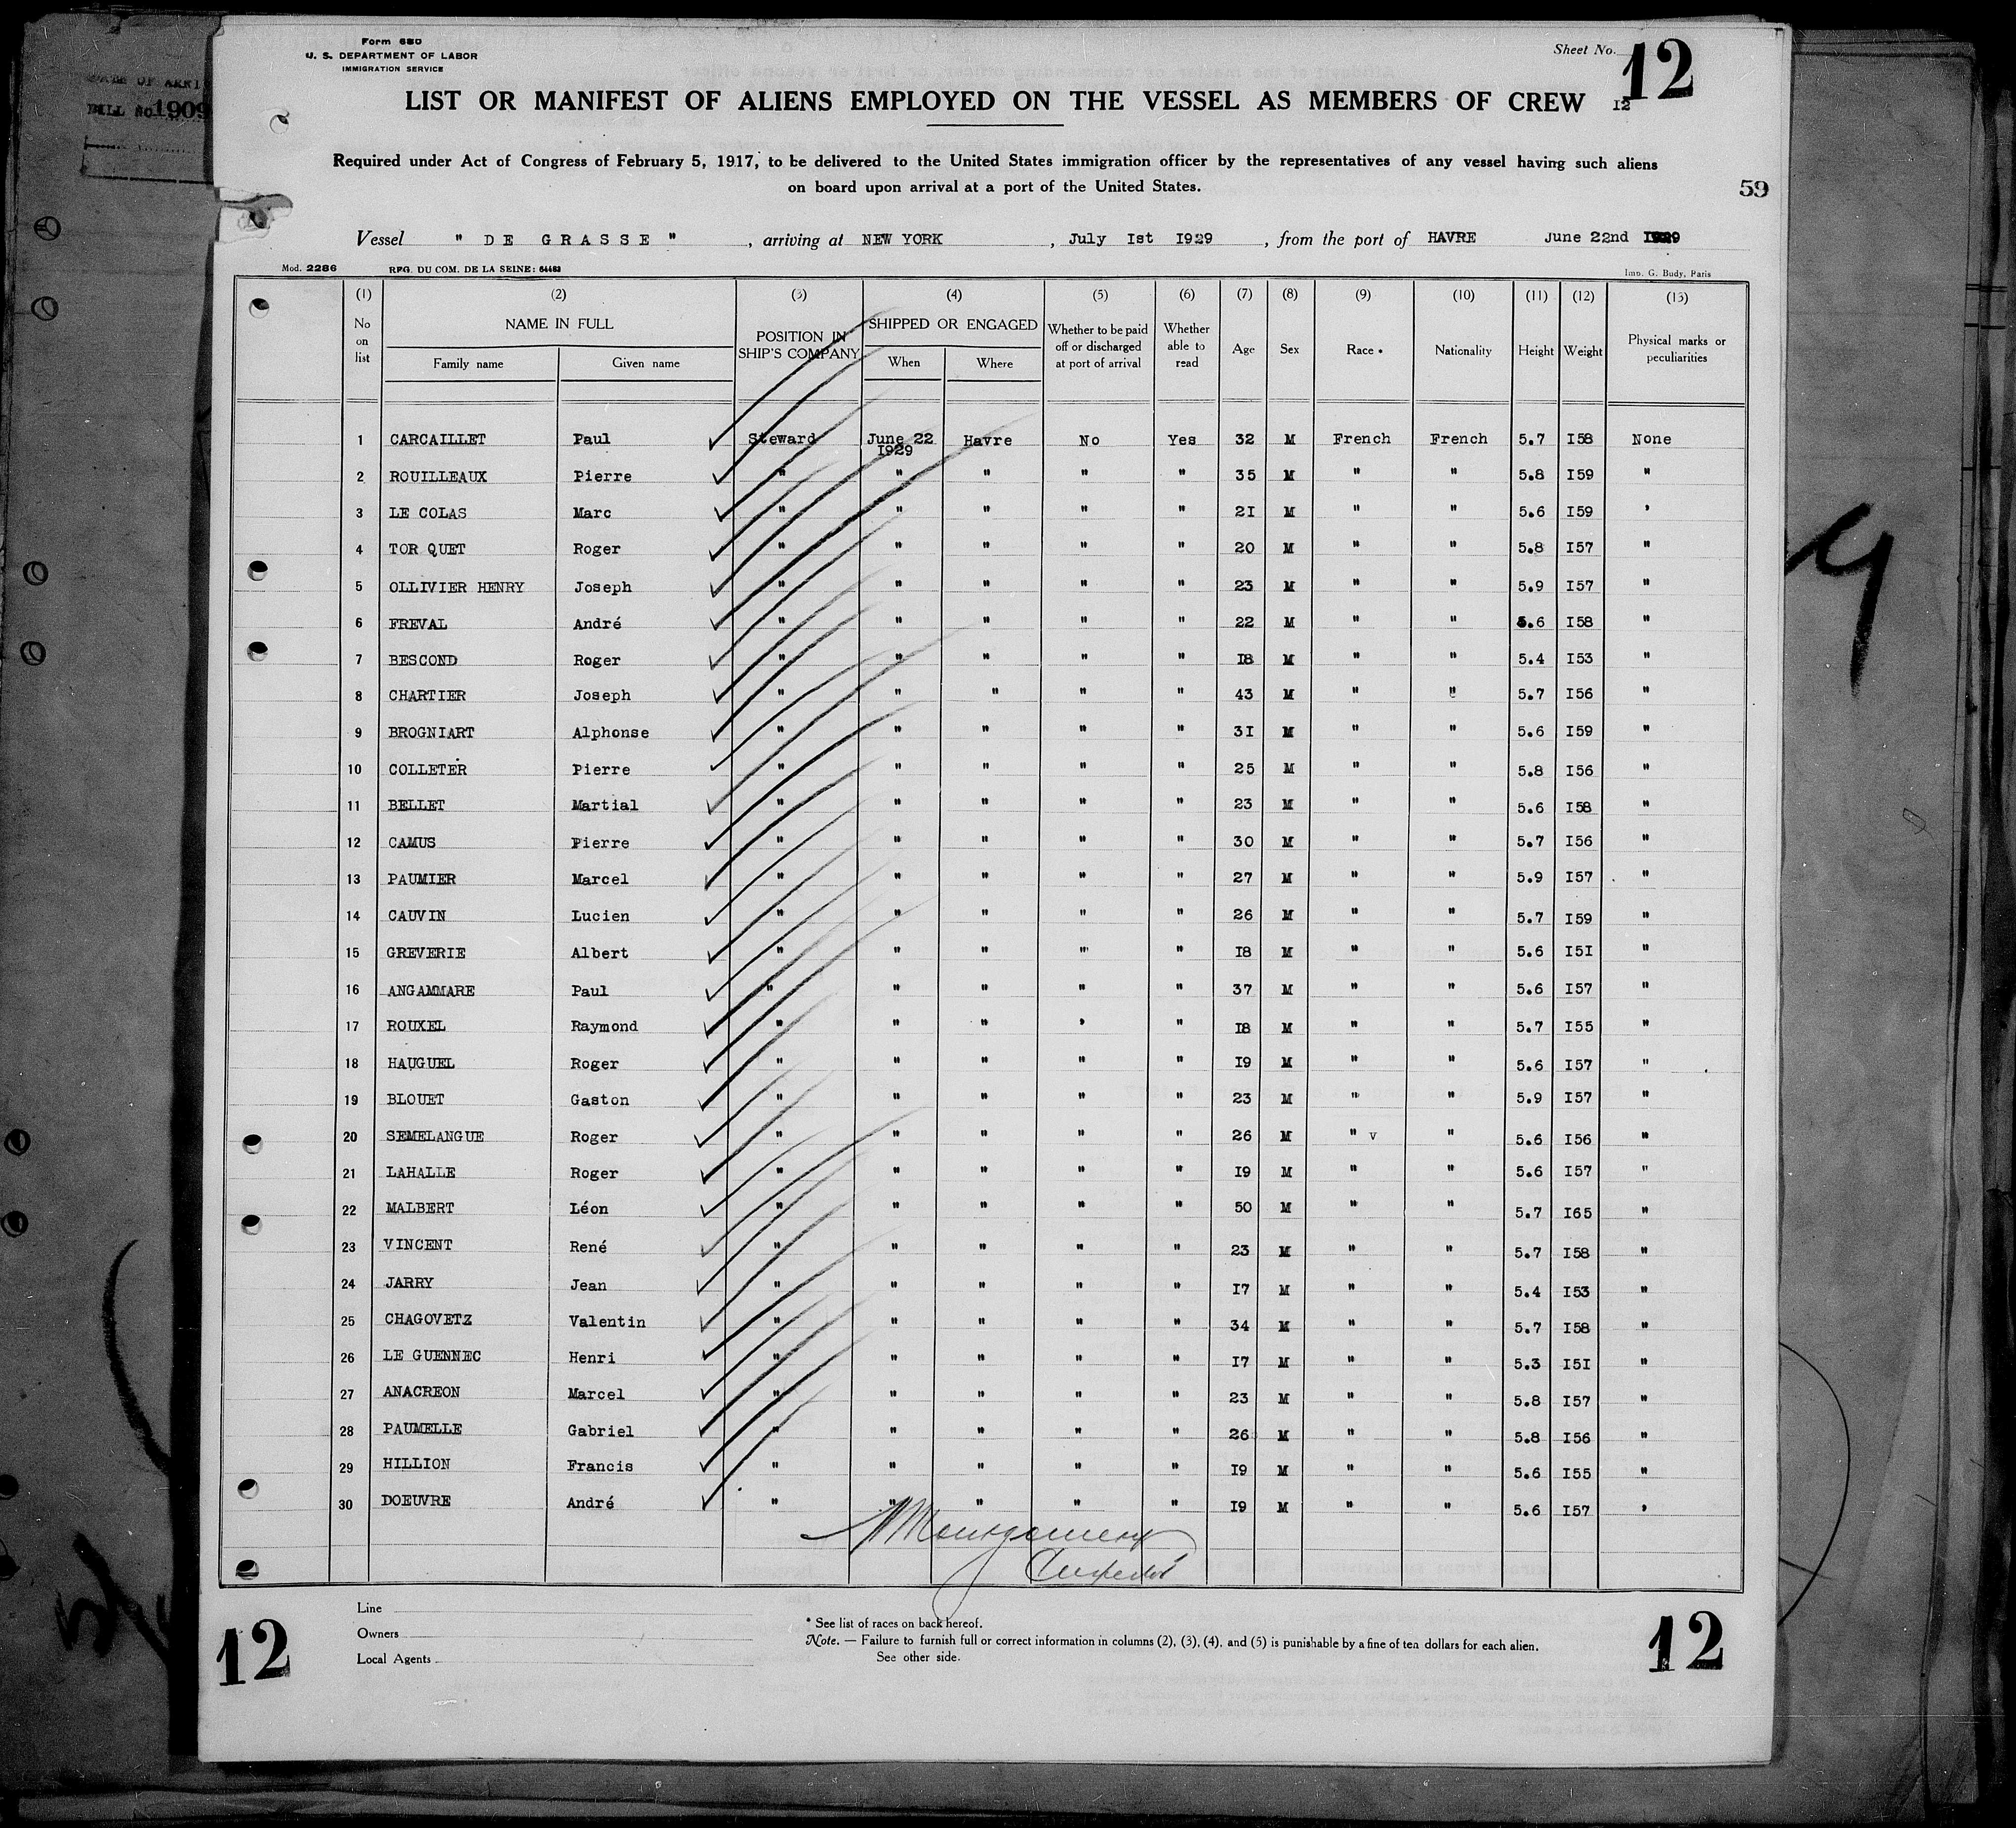 Form 680
U. S. DEPARTMENT OF LABOR
IMMIGRATION SERVICE
Sheet No. 12
LIST OR MANIFEST OF ALIENS EMPLOYED ON THE VESSEL AS MEMBERS OF CREW 12
Required under Act of Congress of February 5, 1917, to be delivered to the United States immigration officer by the representatives of any vessel having such aliens
on board upon arrival at a port of the United States.
59
BILL No 1909
Vessel " DE GRASSE ", arriving at NEW YORK, July Ist I929, from the port of HAVRE June 22nd I929
Mod. 2286 REG. DU COM. DE LA SEINE: 64483 Imp. G. Budy, Paris
(1) (2) (3) (4) (5) (6) (7) (8) (9) (10) (11) (12) (13)
No on list NAME IN FULL Family name Given name POSITION IN SHIP'S COMPANY SHIPPED OR ENGAGED When Where Whether to be paid off or discharged at port of arrival Whether able to read Age Sex Race * Nationality Height Weight Physical marks or peculiarities
1 CARCAILLET Paul Steward June 22 I929 Havre No Yes 32 M French French 5.7 I58 None
2 ROUILLEAUX Pierre " " " " " 35 M " " 5.8 I59 "
3 LE COLAS Marc " " " " " 2I M " " 5.6 I59 '
4 TOR QUET Roger " " " " " 20 M " " 5.8 I57 "
5 OLLIVIER HENRY Joseph " " " " " 23 M " " 5.9 I57 "
6 FREVAL André " " " " " 22 M " " 5.6 I58 "
7 BESCOND Roger " " " " " I8 M " " 5.4 I53 "
8 CHARTIER Joseph " " " " " 43 M " " 5.7 I56 "
9 BROGNIART Alphonse " " " " " 3I M " " 5.6 I59 "
10 COLLETER Pierre " " " " " 25 M " " 5.8 I56 "
11 BELLET Martial " " " " " 23 M " " 5.6 I58 "
12 CAMUS Pierre " " " " " 30 M " " 5.7 I56 "
13 PAUMIER Marcel " " " " " 27 M " " 5.9 I57 "
14 CAUVIN Lucien " " " " " 26 M " " 5.7 I59 "
15 GREVERIE Albert " " " " " I8 M " " 5.6 I5I "
16 ANGAMMARE Paul " " " " " 37 M " " 5.6 I57 "
17 ROUXEL Raymond " " " ' " I8 M " " 5.7 I55 "
18 HAUGUEL Roger " " " " " I9 M " " 5.6 I57 "
19 BLOUET Gaston " " " " " 23 M " " 5.9 I57 "
20 SEMELANGUE Roger " " " " " 26 M " v " 5.6 I56 "
21 LAHALLE Roger " " " " " I9 M " " 5.6 I57 "
22 MALBERT Léon " " " " " 50 M " " 5.7 I65 "
23 VINCENT René " " " " " 23 M " " 5.7 I58 "
24 JARRY Jean " " " " " I7 M " " 5.4 I53 "
25 CHAGOVETZ Valentin " " " " " 34 M " " 5.7 I58 "
26 LE GUENNEC Henri " " " " " I7 M " " 5.3 I5I "
27 ANACREON Marcel " " " " " 23 M " " 5.8 I57 "
28 PAUMELLE Gabriel " " " " " 26 M " " 5.8 I56 "
29 HILLION Francis " " " " " I9 M " " 5.6 I55 "
30 DOEUVRE André " " " " " I9 M " " 5.6 I57 '
Montgomery
Line
Owners
Local Agents
* See list of races on back hereof.
Note. — Failure to furnish full or correct information in columns (2), (3), (4), and (5) is punishable by a fine of ten dollars for each alien.
See other side.
12
12